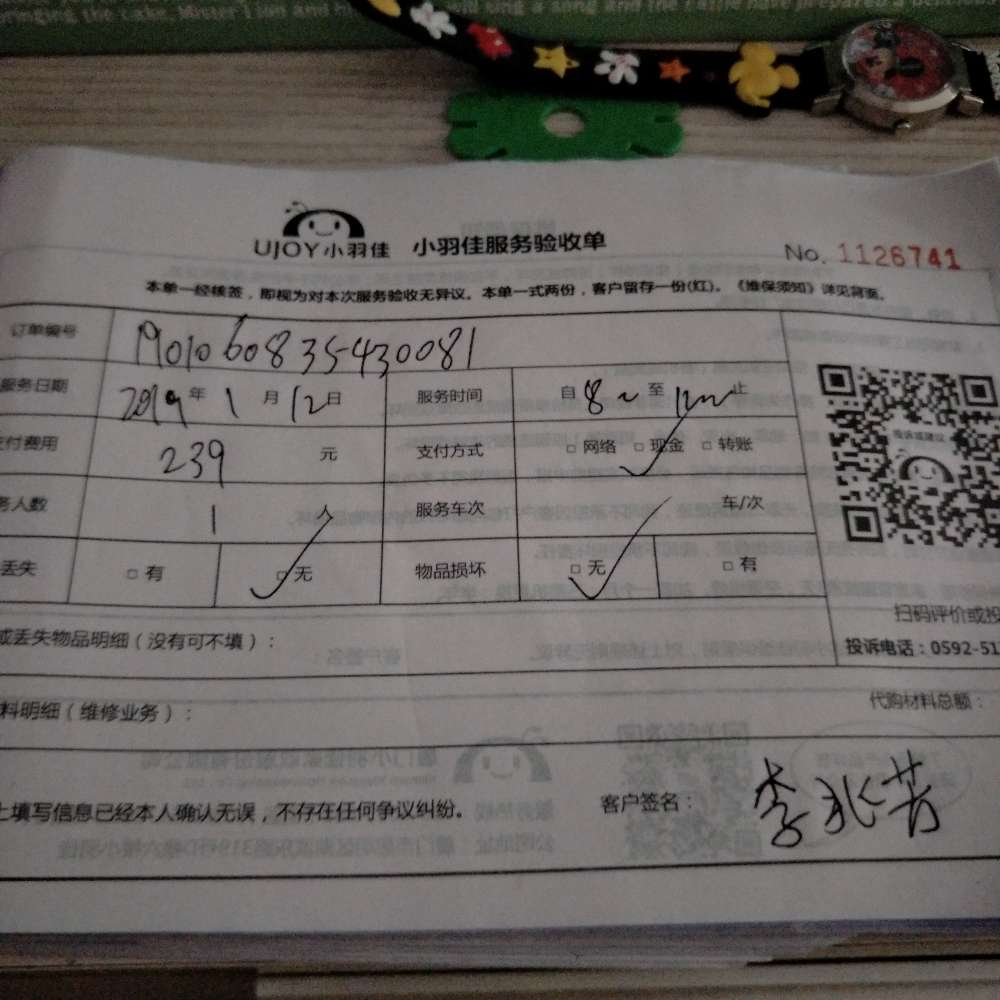 bringing the cake, Mister Lion and his
will sing a song and the cattle have prepared a delicious
UJOY小羽佳 小羽佳服务验收单
No. 1126741
本单一经核签，即视为对本次服务验收无异议。本单一式两份，客户留存一份(红)。《维保须知》详见背面。
订单编号 1901060835430081
服务日期 2019年1月12日 服务时间 自8～至12～止
付费用 239 元 支付方式 □网络 □现金 □转账
务人数 1 人 服务车次 车/次
丢失 □有 □无 物品损坏 □无 □有
投诉或建议
扫码评价或投
投诉电话：0592-51
或丢失物品明细（没有可不填）：
料明细（维修业务）：
代购材料总额：
上填写信息已经本人确认无误，不存在任何争议纠纷。
客户签名： 李兆芳